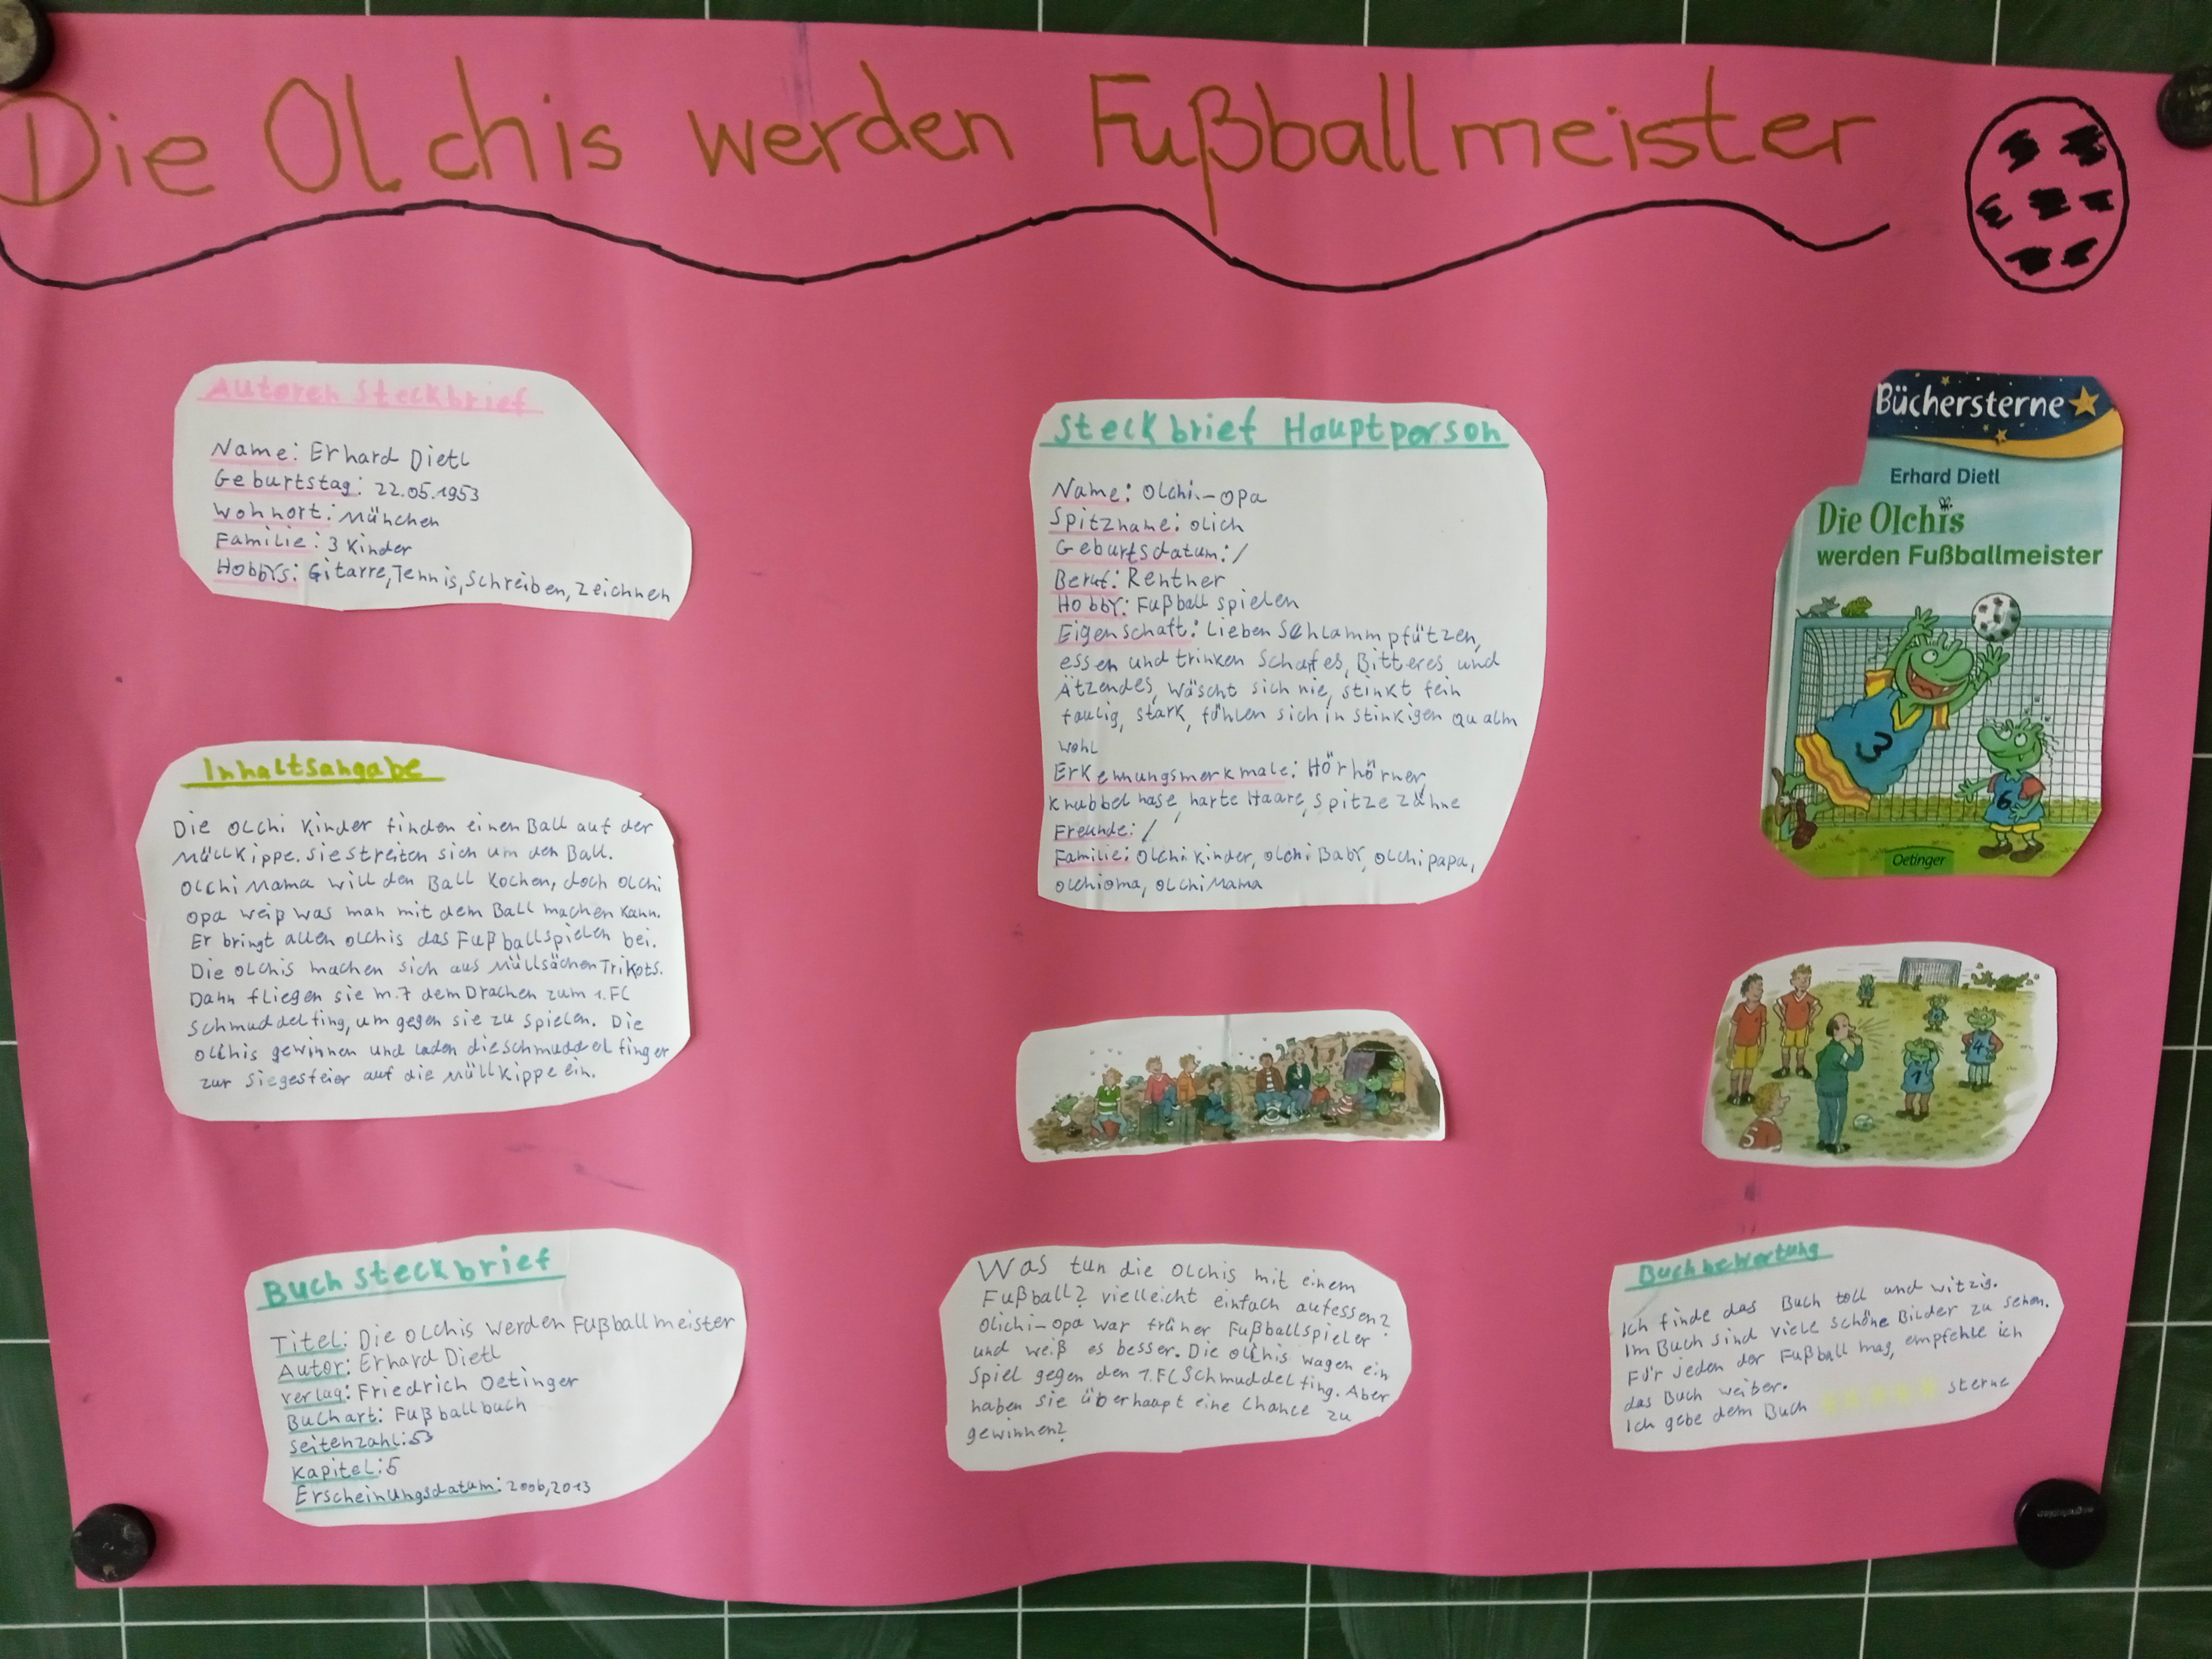 Die Olchis werden Fußballmeister
Autoren Steckbrief
Name: Erhard Dietl
Geburtstag: 22.05.1953
Wohnort: München
Familie: 3 Kinder
Hobbys: Gitarre, Tennis, Schreiben, Zeichnen
Inhaltsangabe
Die Olchi Kinder finden einen Ball auf der
Müllkippe. Sie streiten sich um den Ball.
Olchi Mama will den Ball kochen, doch Olchi
Opa weiß was man mit dem Ball machen kann.
Er bringt allen Olchis das Fußballspielen bei.
Die Olchis machen sich aus Müllsächen Trikots.
Dann fliegen sie mit dem Drachen zum 1. FC
Schmuddelfing, um gegen sie zu spielen. Die
Olchis gewinnen und laden die Schmuddelfinger
zur Siegesfeier auf die Müllkippe ein.
Buchsteckbrief
Titel: Die Olchis werden Fußballmeister
Autor: Erhard Dietl
Verlag: Friedrich Oetinger
Buchart: Fußballbuch
Seitenzahl: 53
Kapitel: 5
Erscheinungsdatum: 2006, 2013
Steckbrief Hauptperson
Name: Olchi-Opa
Spitzname: Olich
Geburtsdatum: /
Beruf: Rentner
Hobby: Fußball spielen
Eigenschaft: Lieben Schlammpfützen,
essen und trinken Schafes, Bitteres und
Ätzendes, wäscht sich nie, stinkt fein
faulig, stark, fühlen sich in stinkigen Qualm
wohl
Erkennungsmerkmale: Hörhörner,
Knubbelnase, harte Haare, spitze Zähne
Freunde: /
Familie: Olchi Kinder, Olchi Baby, Olchipapa,
Olchioma, Olchi Mama
Was tun die Olchis mit einem
Fußball? vielleicht einfach aufessen?
Olichi-Opa war früher Fußballspieler
und weiß es besser. Die Olchis wagen ein
Spiel gegen den 1. FC Schmuddelfing. Aber
haben sie überhaupt eine Chance zu
gewinnen?
Büchersterne
Erhard Dietl
Die Olchis
werden Fußballmeister
3
6
Oetinger
4
1
5
Buchbewertung
Ich finde das Buch toll und witzig.
Im Buch sind viele schöne Bilder zu sehen.
Für jeden der Fußball mag, empfehle ich
das Buch weiber.
Ich gebe dem Buch ★★★★★ Sterne